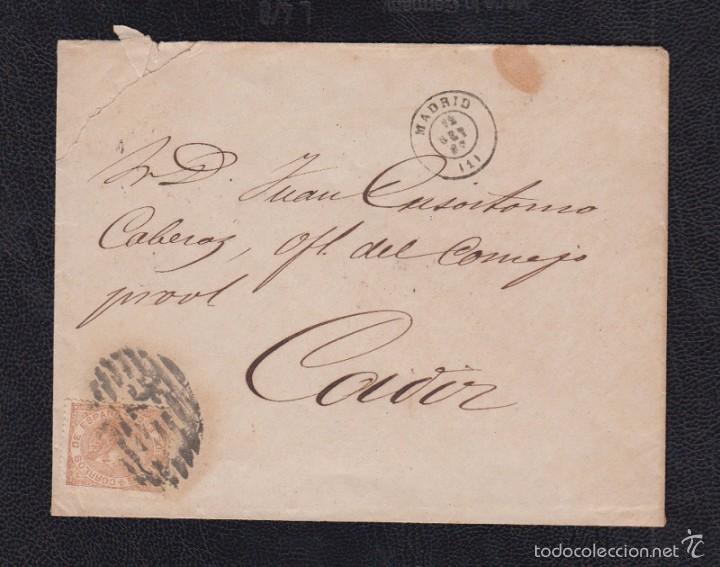 MADRID
12
SET
67
(1)
Sr D. Juan Crisostomo
Caberos, ofl. del Consejo
provl
Cadiz
CORREOS DE ESPAÑA
todocoleccion.net